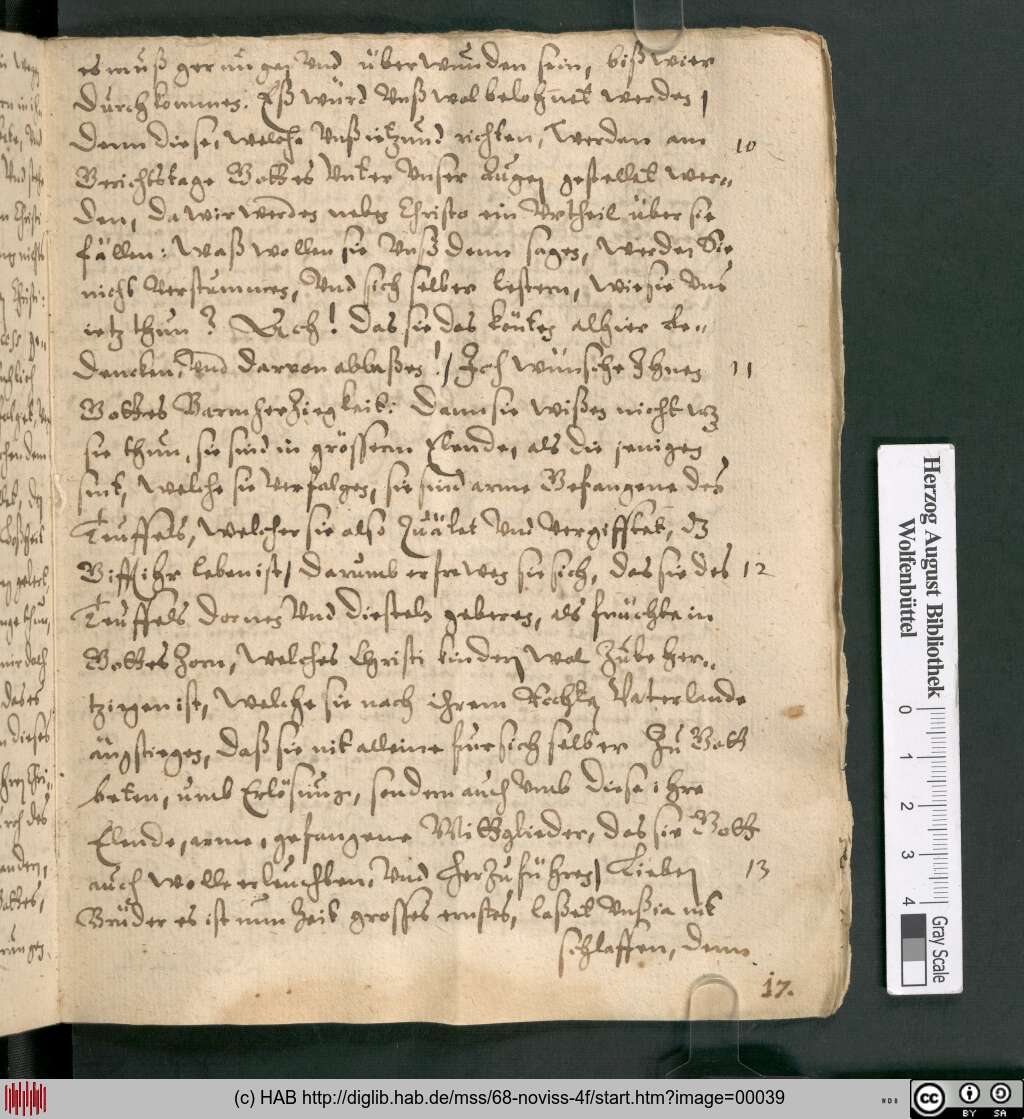 es muß gerungen Vnd überwunden sein, biß wier
durchkommen: Eß würd Vnß wol belohnet werden /
denn diese, welche Vnß ietzund richten, werden am 10
Gerichtstage Gottes Vnter Vnser augen gestellet wer-
den, da wir werden neben Christo ein Vrtheil über sie
fällen: Waß wollen sie Vnß denn sagen, werden Sie
nicht Verstummen, Vnd sich selber lestern, wie sie Vns
ietz thun? Ach! das sie das könten alhier be-
dencken, Vnd darvon ablaßen! / Ich wünsche Ihnen 11
Gottes Barmherziegkeit: Dann sie wißen nicht wz
sie thun, sie sind in grösserm Elende, als die jenigen
sint, welche sie verfolgen, sie sind arme Gefangene des
Teuffels, welcher sie also Quälet Vnd vergifftet, dz
Gifft ihr leben ist / darumb erfrewen sie sich, das sie des 12
Teuffels dornen Vnd diesteln geberen, als früchte in
Gottes Zorn, welches Christi kindern wol Zube her-
tzigen ist, welche sie nach ihrem Rechten Vaterlande
ängstiegen, daß sie nit alleine fur sich selber Zu Gott
beten, umb Erlösung, sondern auch Vmb diese ihre
Elende, arme, gefangene Mittglieder, das sie Gott
auch wolle erleuchten, Vnd herZuführen / Lieben 13
Brüder es ist nun Zeit grosses ernstes, laßet Vnß ia nit
schlaffen, denn
17.
Herzog August Bibliothek
Wolfenbüttel
0 1 2 3 4
Gray Scale
(c) HAB http://diglib.hab.de/mss/68-noviss-4f/start.htm?image=00039
WDB
cc BY SA